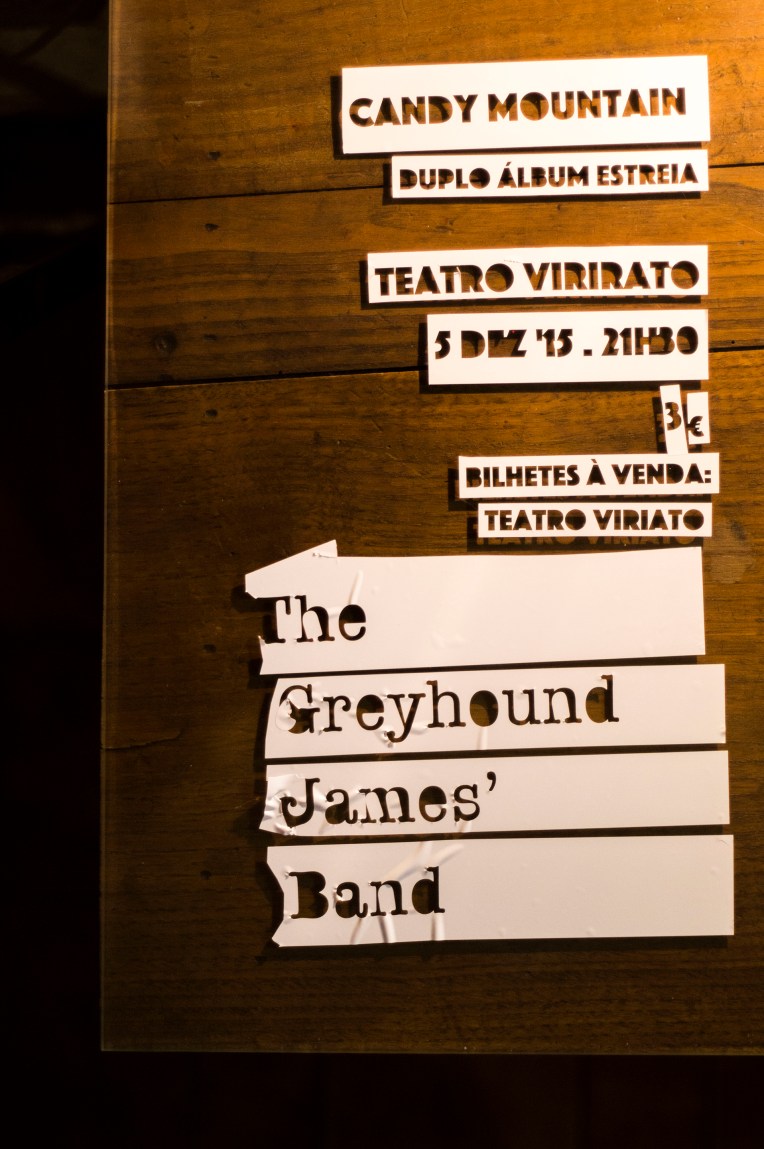 CANDY MOUNTAIN
DUPLO ÁLBUM ESTREIA
TEATRO VIRIRATO
5 DEZ '15 . 21H30
3 €
BILHETES À VENDA:
TEATRO VIRIATO
The
Greyhound
James’
Band